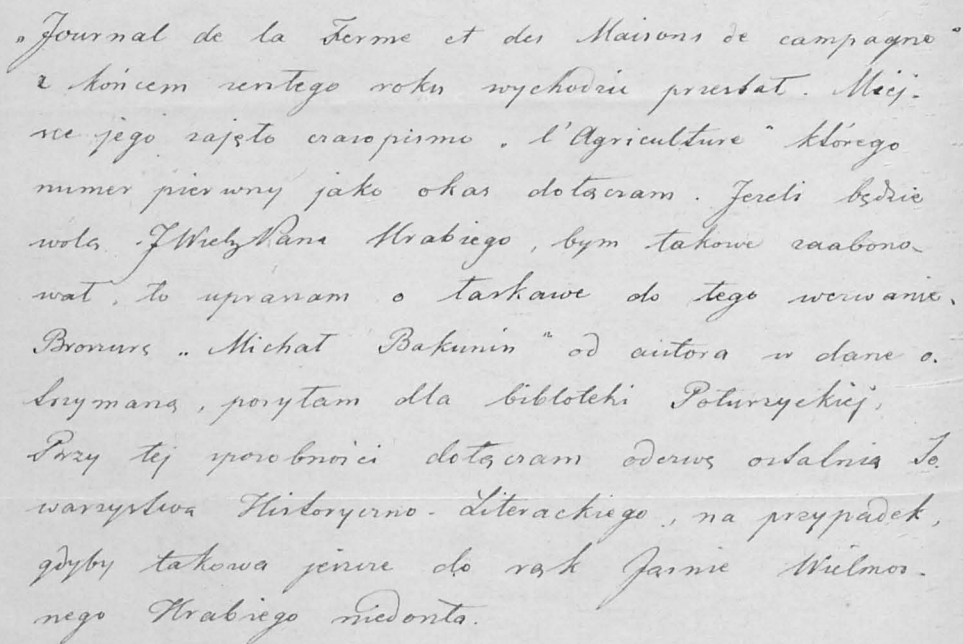 „Journal de la Ferme et des Maisons de campagne"
z końcem zeszłego roku wychodzić przestał. Miej-
sce jego zajęło czasopismo „l'Agriculture" którego
numer pierwszy jako okaz dołączam. Jeżeli będzie
wolą JWielż Pana Hrabiego, bym takowe zaabono-
wał, to upraszam o łaskawe do tego wezwanie.
Broszurę „Michał Bakunin" od autora w dane o-
trzymaną, posyłam dla bibloteki Poturzyckiej.
Przy tej sposobności dołączam odezwę ostatnią To-
warzystwa Historyczno-Literackiego, na przypadek,
gdyby takowa jeszcze do rąk Jaśnie Wielmoż-
nego Hrabiego niedoszła.